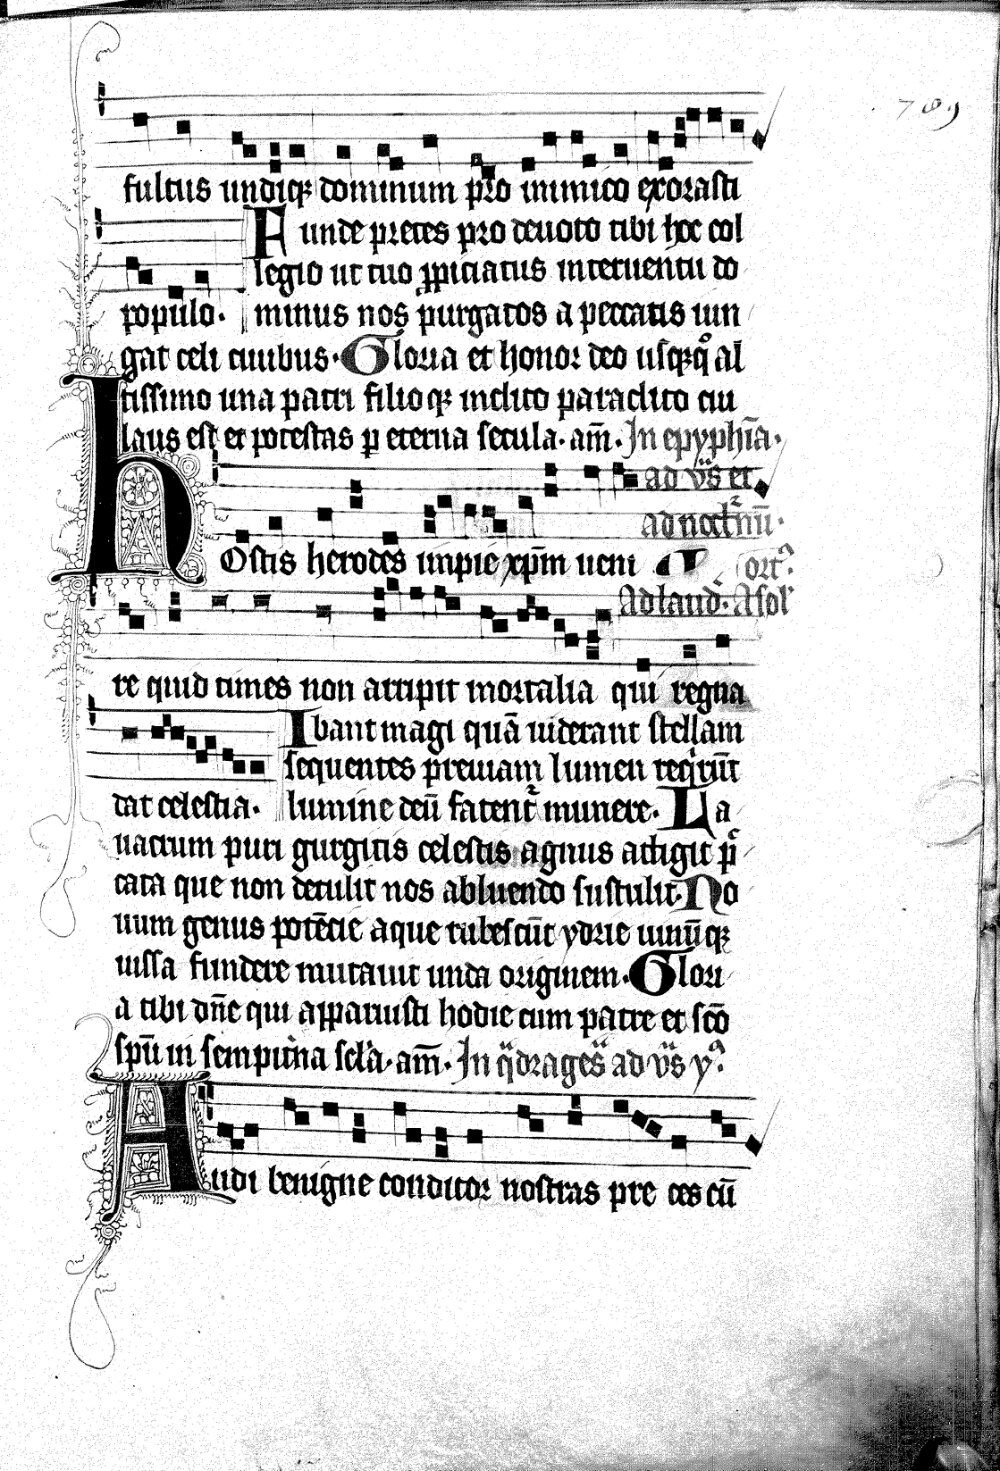 789
fultus undiqꝫ dominum pro inimico exorasti
Funde preces pro deuoto tibi hoc col
legio ut tuo ꝓpiciatus interuentu do
populo. minus nos purgatos a peccatis iun
gat celi ciuibus. Gloria et honor deo usqꝫqͦ al
tissimo una patri filioqꝫ inclito paraclito cui
laus est et potestas ꝑ eterna secula. am̄. In epyphīa.
ad vͬs et
ad noct̄nū.
Hostis herodes impie xp̄m ueni
Ad laud. A sol
re quid times non arripit mortalia qui regna
Ibant magi quā uiderant stellam
sequentes preuiam lumen requirūt
dat celestia. lumine deū fatent᷑ munere. La
uacrum puri gurgitis celestis agnus attigit pͨ
cata que non detulit nos abluendo sustulit. No
uum genus potēcie aque rubescūt ydrie uinūqꝫ
iussa fundere mutauit unda originem. Glori
a tibi dn̄e qui apparuisti hodie cum patre et scō
spū in sempit̄na scl̄a. am̄. In qͣdrageͣs ad vͬs yꝰ
Audi benigne conditor nostras pre ces cū